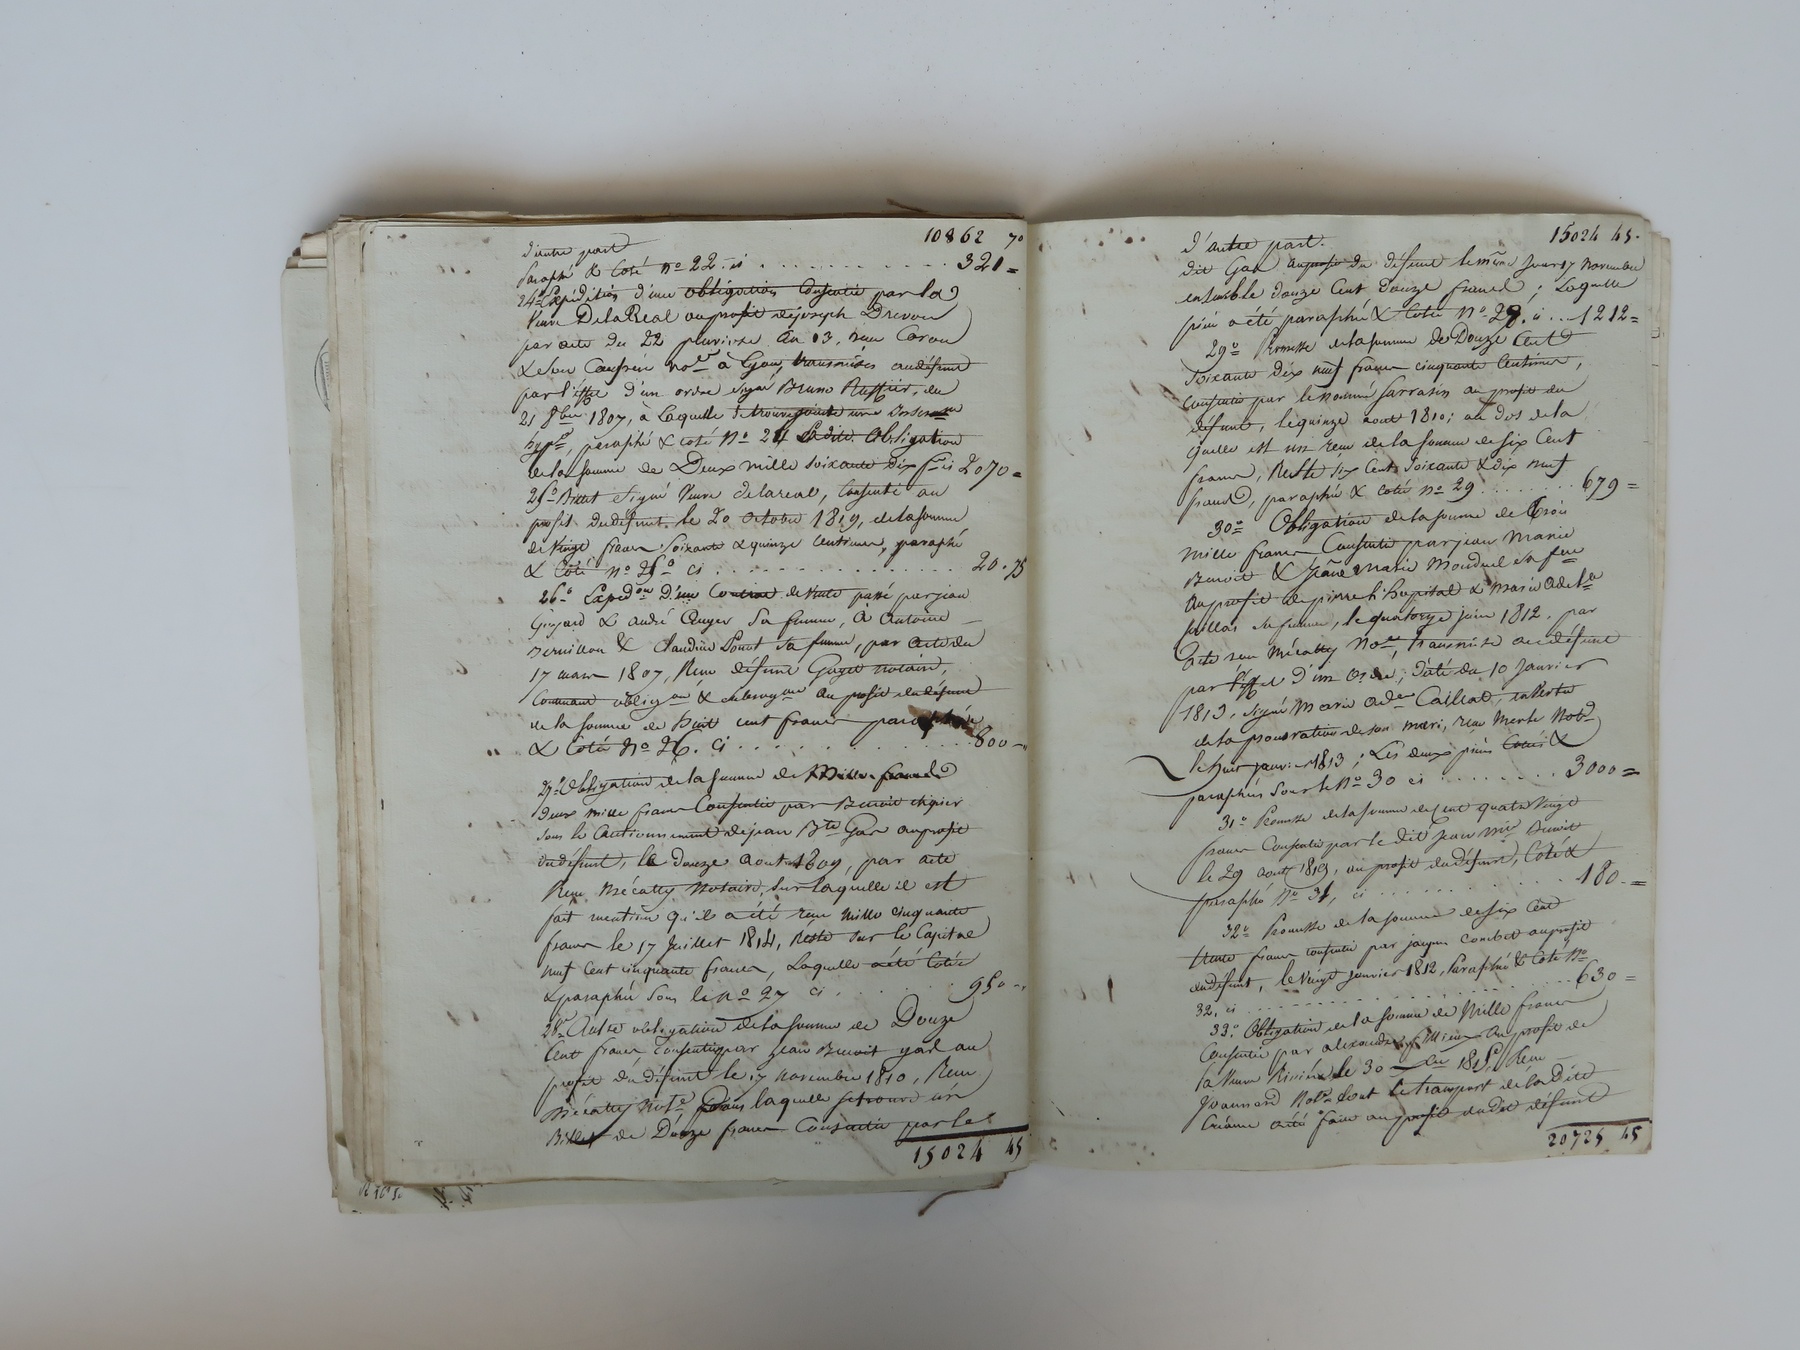 d'autre part 10862 70
paraphé & Coté no 22. ci . . . . . . . . . . . 321 =
24o Expédition d'une obligation Consentie par la
Veuve DelaReal au profit de joseph Drevon
par acte du 22 pluviose an 13. reçu Caron
& Son Confrère nores à Lyon, transmises au défunt
par l'effet d'un ordre signé Bruno Ruffier, du
21 8bre 1807, à Laquelle se trouve jointe une
hypre, paraphé & coté No 24 Ladite Obligation
de la somme de Deux mille soixante dix f ci 2070 =
25o Billet signé Veuve delareal, Consenti au
profit du défunt. le 20 octobre 1819, de la somme
de Vingt francs Soixante & quinze Centimes, paraphé
& Coté no 25o ci . . . . . . . . . . . . . . . 20. 75
26o Expedon D'un Contrat de Vente passé par jean
& andré Sa femme, à antoine
& Claudine Sa femme, par acte du
17 mars 1807, Reçu défunt Guyot notaire,
Contenant obligon & au profit du défunt
de la somme de huit cent francs paraphée
& Coté No 26. Ci . . . . . . . . . . . . . 800
27o Obligation de la somme de Mille francs
deux mille francs Consentie par Benoit
sous le Cautionnement de jean Bte Gar au profit
du défunt, le douze aout 1809, par acte
Reçu Mécatty Notaire, Sur laquelle il est
fait mention qu'il a été reçu mille cinquante
francs le 17 Juillet 1814, Reste Sur le Capital
neuf Cent cinquante francs, Laquelle a été Cotée
& paraphée Sous le no 27 ci . . . . . . 950
28o Autre obligation de la somme de Douze
Cent francs consentie par jean Benoit gar au
profit du défunt le 17 novembre 1810, Reçu
Mécatty Note, Dans laquelle se trouve un
Billet de Douze francs Consentie par le
15024 45
d'autre part. 15024 45.
dit Gar au profit du défunt le même Jour 17 novembre
ensemble douze Cent douze francs; Laquelle
pièce a été paraphé & Cotée No 28. ci . . . 1212 =
29o Promesse de la somme de Douze Cent
Soixante dix neuf francs cinquante Centimes,
Consentie par le nommé Sarrasin au profit du
défunt, le quinze aout 1810; au dos de la
quelle est un reçu de la somme de six Cent
francs, Reste six Cent Soixante & dix neuf
francs, paraphé & coté no 29 . . . . . . . 679 =
30o Obligation de la somme de Trois
mille francs Consentie par jean Marie
Benoit & Jeanne Marie Sa fme
au profit de pierre l'hopital & Marie Adelle
Sa femme, le quatorze juin 1812. par
acte reçu Mécatty Nore, transmise au défunt
par l'effet d'un ordre; Daté du 10 Janvier
1813, signé Marie Adle Caillat, en Vertu
de la procuration de son mari, reçu Note
le huit janvier 1813; Les deux pièces Cotées &
paraphées Sous le No 30 ci . . . . . . . . 3000 =
31o Promesse de la somme de Cent quatre Vingt
francs Consentie par le dit Jean mie Benoit
le 29 aout 1813, au profit du défunt, Coté &
paraphé No 31, ci . . . . . . . . . . 180 =
32o Promesse de la somme de six Cent
trente francs consentie par jacques combet au profit
du défunt, le Vingt janvier 1812, Paraphé & Coté No
32. ci . . . . . . . . . . . . . . . . . 630 =
33o Obligation de la Somme de Mille francs
Consentie par alexandre au profit de
la Veuve Rivière le 30 Reçu
Note Dont le transport de la Dite
Créance a été faite au profit du dit défunt
20725 45